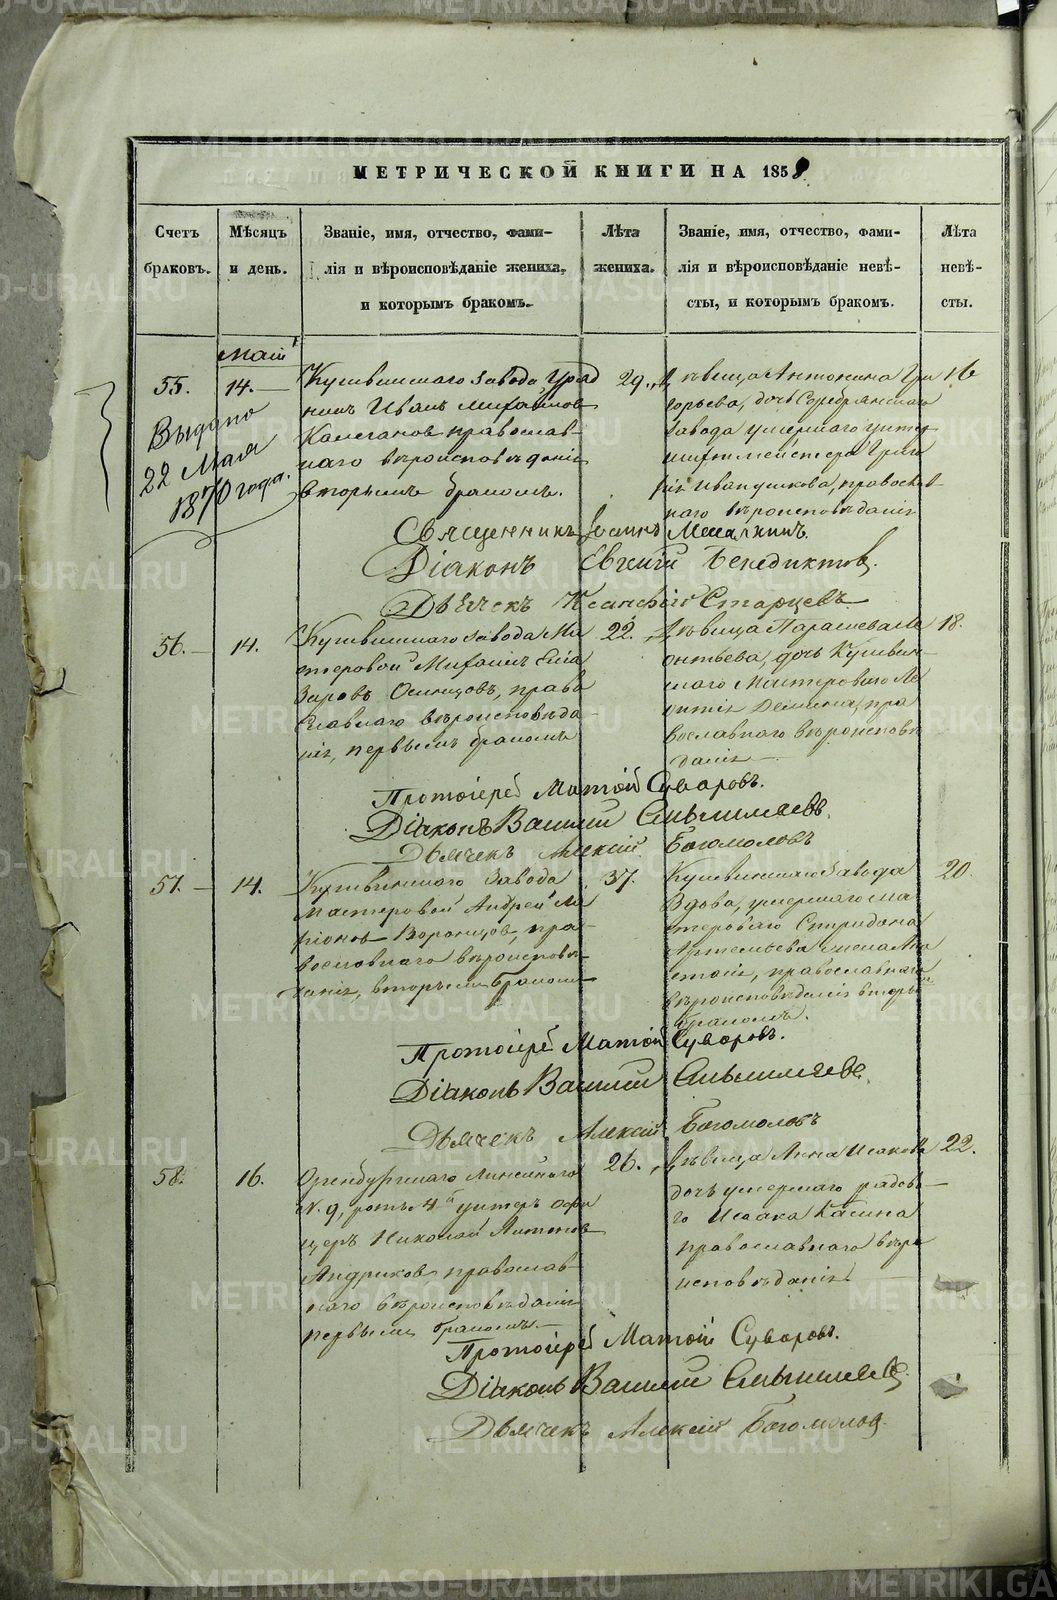 МЕТРИЧЕСКОЙ КНИГИ НА 1858
Счетъ браковъ.
Мѣсяцъ и день.
Званіе, имя, отчество, фами-
лія и вѣроисповѣданіе жениха,
и которымъ бракомъ.
Лѣта
жениха.
Званіе, имя, отчество, фами-
лія и вѣроисповѣданіе невѣ-
сты, и которымъ бракомъ.
Лѣта
невѣ-
сты.
Маій
55.
14.
Выдано
22 Мая
1870 года.
Кушвинскаго завода Уряд
никъ Иванъ Михайловъ
православ-
наго вѣроисповѣданія
вторымъ бракомъ.
29.
Дѣвица Антонина Гри
горьева, дочь Серебрянскаго
завода умершаго унтер
шихтмейстера Григо
рія Иванушкова, православ-
наго вѣроисповѣданія
16
Священникъ Іоаннъ
Діаконъ Евгеній Бенедиктов.
Дьячекъ Ксанфій Старцевъ
56.
14.
Кушвинскаго завода Ма
стеровой Михаилъ Елиа
заровъ Осинцовъ, право
славнаго вѣроисповѣда
нія, первымъ бракомъ
22.
Дѣвица Параскева Ле
онтьева, дочь Кушвин-
скаго Мастероваго Ле
онтія Демина, пра
вославнаго вѣроисповѣ
данія
18.
Протоіерей Матѳій Суваровъ.
Діаконъ Василій
Дьячекъ Алексій Богомоловъ
57.
14.
Кушвинскаго завода
Мастеровой Андрей Ла
ріоновъ Воронцовъ, пра-
вославнаго вѣроисповѣ-
данія, вторымъ бракомъ
37.
Кушвинскаго завода
Вдова, умершаго ма
стероваго Спиридона
Артемьева жена Ана
стасія, православнаго
вѣроисповѣданія вторымъ
бракомъ.
20.
Протоіерей Матѳій Суворовъ.
Діаконъ Василій
Дьячекъ Алексій Богомоловъ
58.
16.
Оренбургскаго Линейнаго
N. 9, роты 4й унтеръ офи
церъ Николай Антоновъ
Андриковъ, православ
наго вѣроисповѣданія
первымъ бракомъ.
26.
Дѣвица Анна Исакова
дочь умершаго рядов-
го Исаака Касина
православнаго вѣро
исповѣданія
22.
Протоіерей Матѳій Суворовъ.
Діаконъ Василій
Дьячекъ Алексій Богомолов.
METRIKI.GASO-URAL.RU